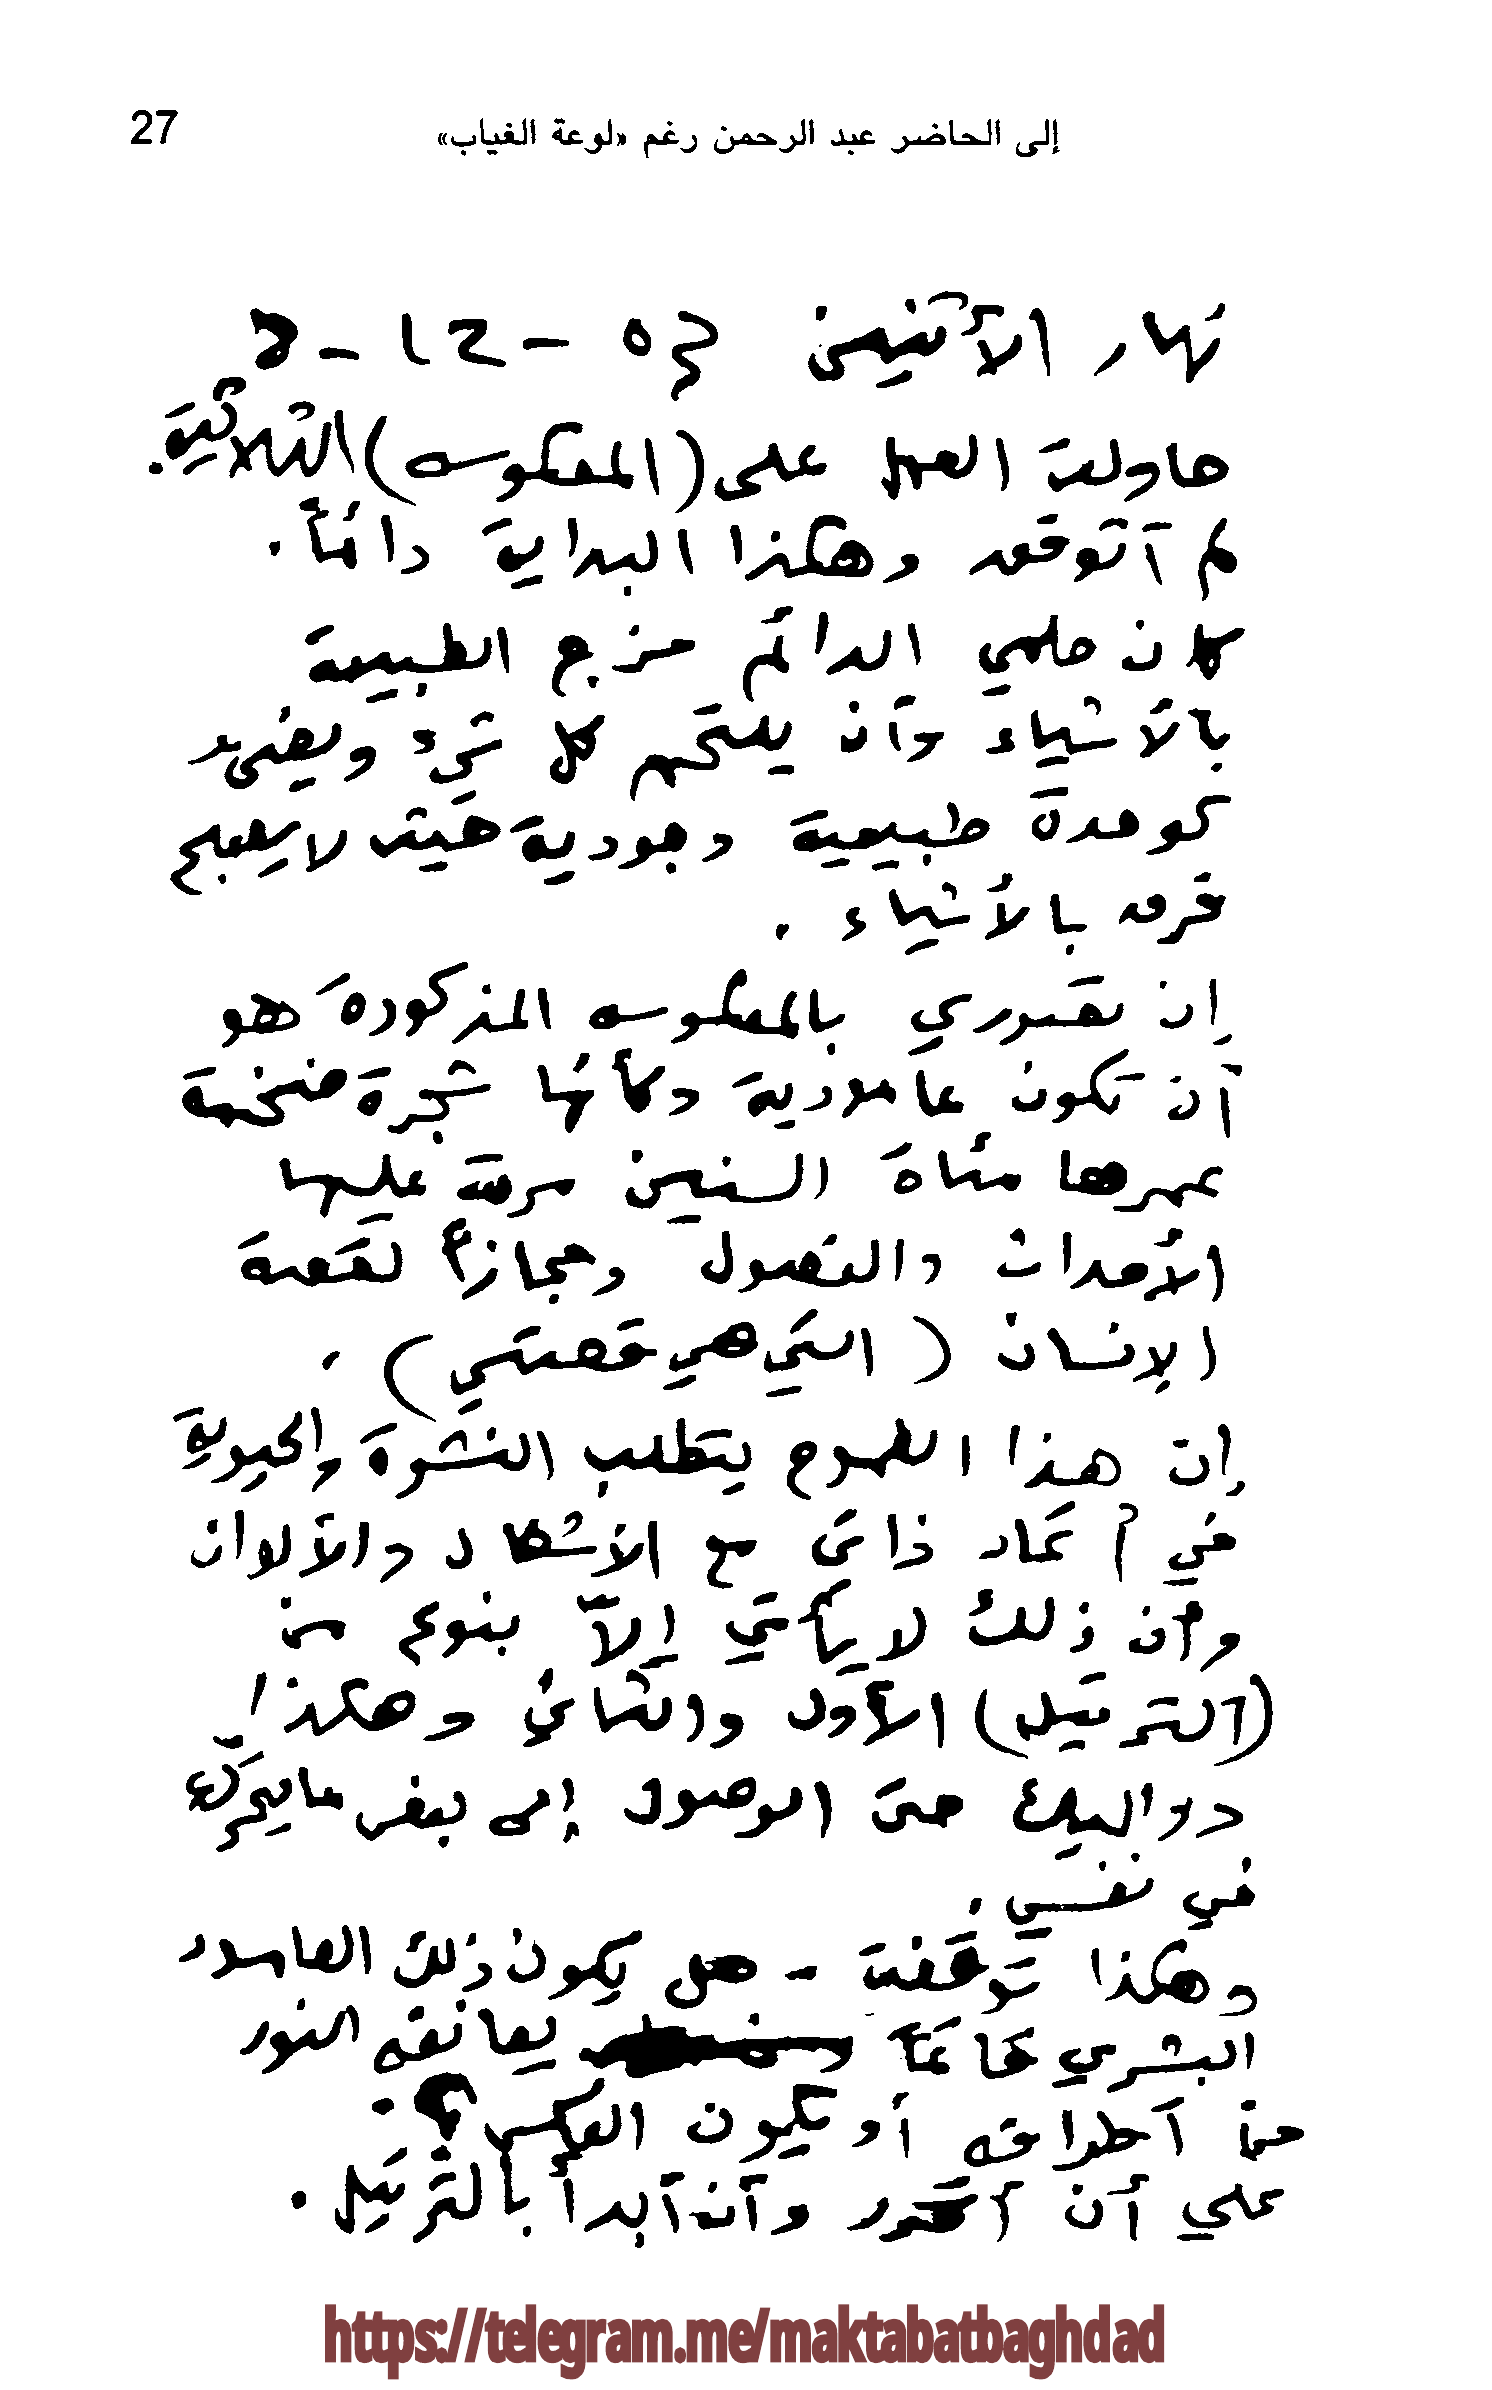 إلى الحاضر عبد الرحمن رغم «لوعة الغياب»
27
نهار الأثنين
حاولت العمل على (المعكوسه) الثلاثية.
لم أتوقف وهكذا البداية دائماً.
كان حلمي الدائم مزج الطبيعة
بالأشياء وأن يلتحم كل شيء ويضيء
كوحدة طبيعية وجودية حيث لا يعلم
فرق بالأشياء.
إن تصوري بالمعكوسه المذكوره هو
أن تكون عامودية وكأنها شجرة ضخمة
عمرها مئات السنين مرت عليها
الأحداث والفصول ومجازاً لقصة
الإنسان (التي هي قصتي).
إن هذا الطموح يتطلب النشوة والحيوية
في اتحاد ذاتي مع الأشكال والألوان
وأن ذلك لا يأتي إلاّ بنوع من
(الترتيل) الأول والثاني وهكذا
دواليك حتى الوصول إلى بعض ما يحرّك
في نفسي.
وهكذا توقفت - هل يكون ذلك العامود
البشري غامقاً يعانقه النور
من أطرافه أو يكون العكس؟.
علي أن أقرر وأن أبدأ بالترتيل.
https://telegram.me/maktabatbaghdad